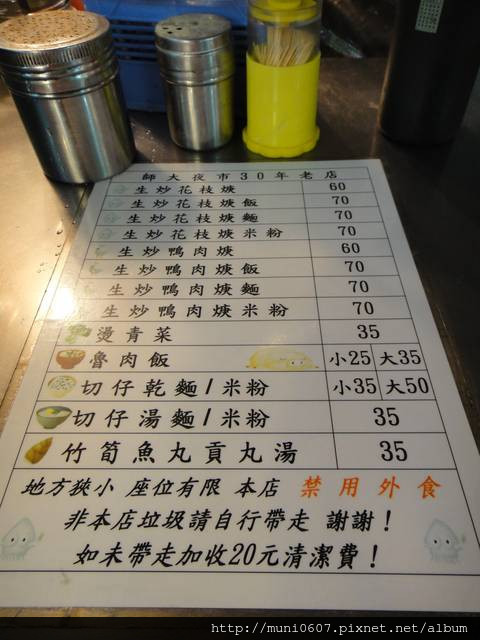 師大夜市30年老店
生炒花枝焿 60
生炒花枝焿飯 70
生炒花枝焿麵 70
生炒花枝焿米粉 70
生炒鴨肉焿 60
生炒鴨肉焿飯 70
生炒鴨肉焿麵 70
生炒鴨肉焿米粉 70
燙青菜 35
魯肉飯 小25 大35
切仔乾麵/米粉 小35 大50
切仔湯麵/米粉 35
竹筍魚丸貢丸湯 35
地方狹小 座位有限 本店 禁用外食
非本店垃圾請自行帶走 謝謝!
如未帶走加收20元清潔費!
http://muni0607.pixnet.net/album